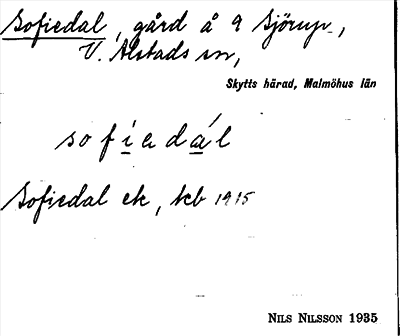 Sofiedal, gård å 9 Sjörup,
V. Alstads sn,
Skytts härad, Malmöhus län
so f i e d a ́ l
Sofiedal ek, kb 1915
NILS NILSSON 1935